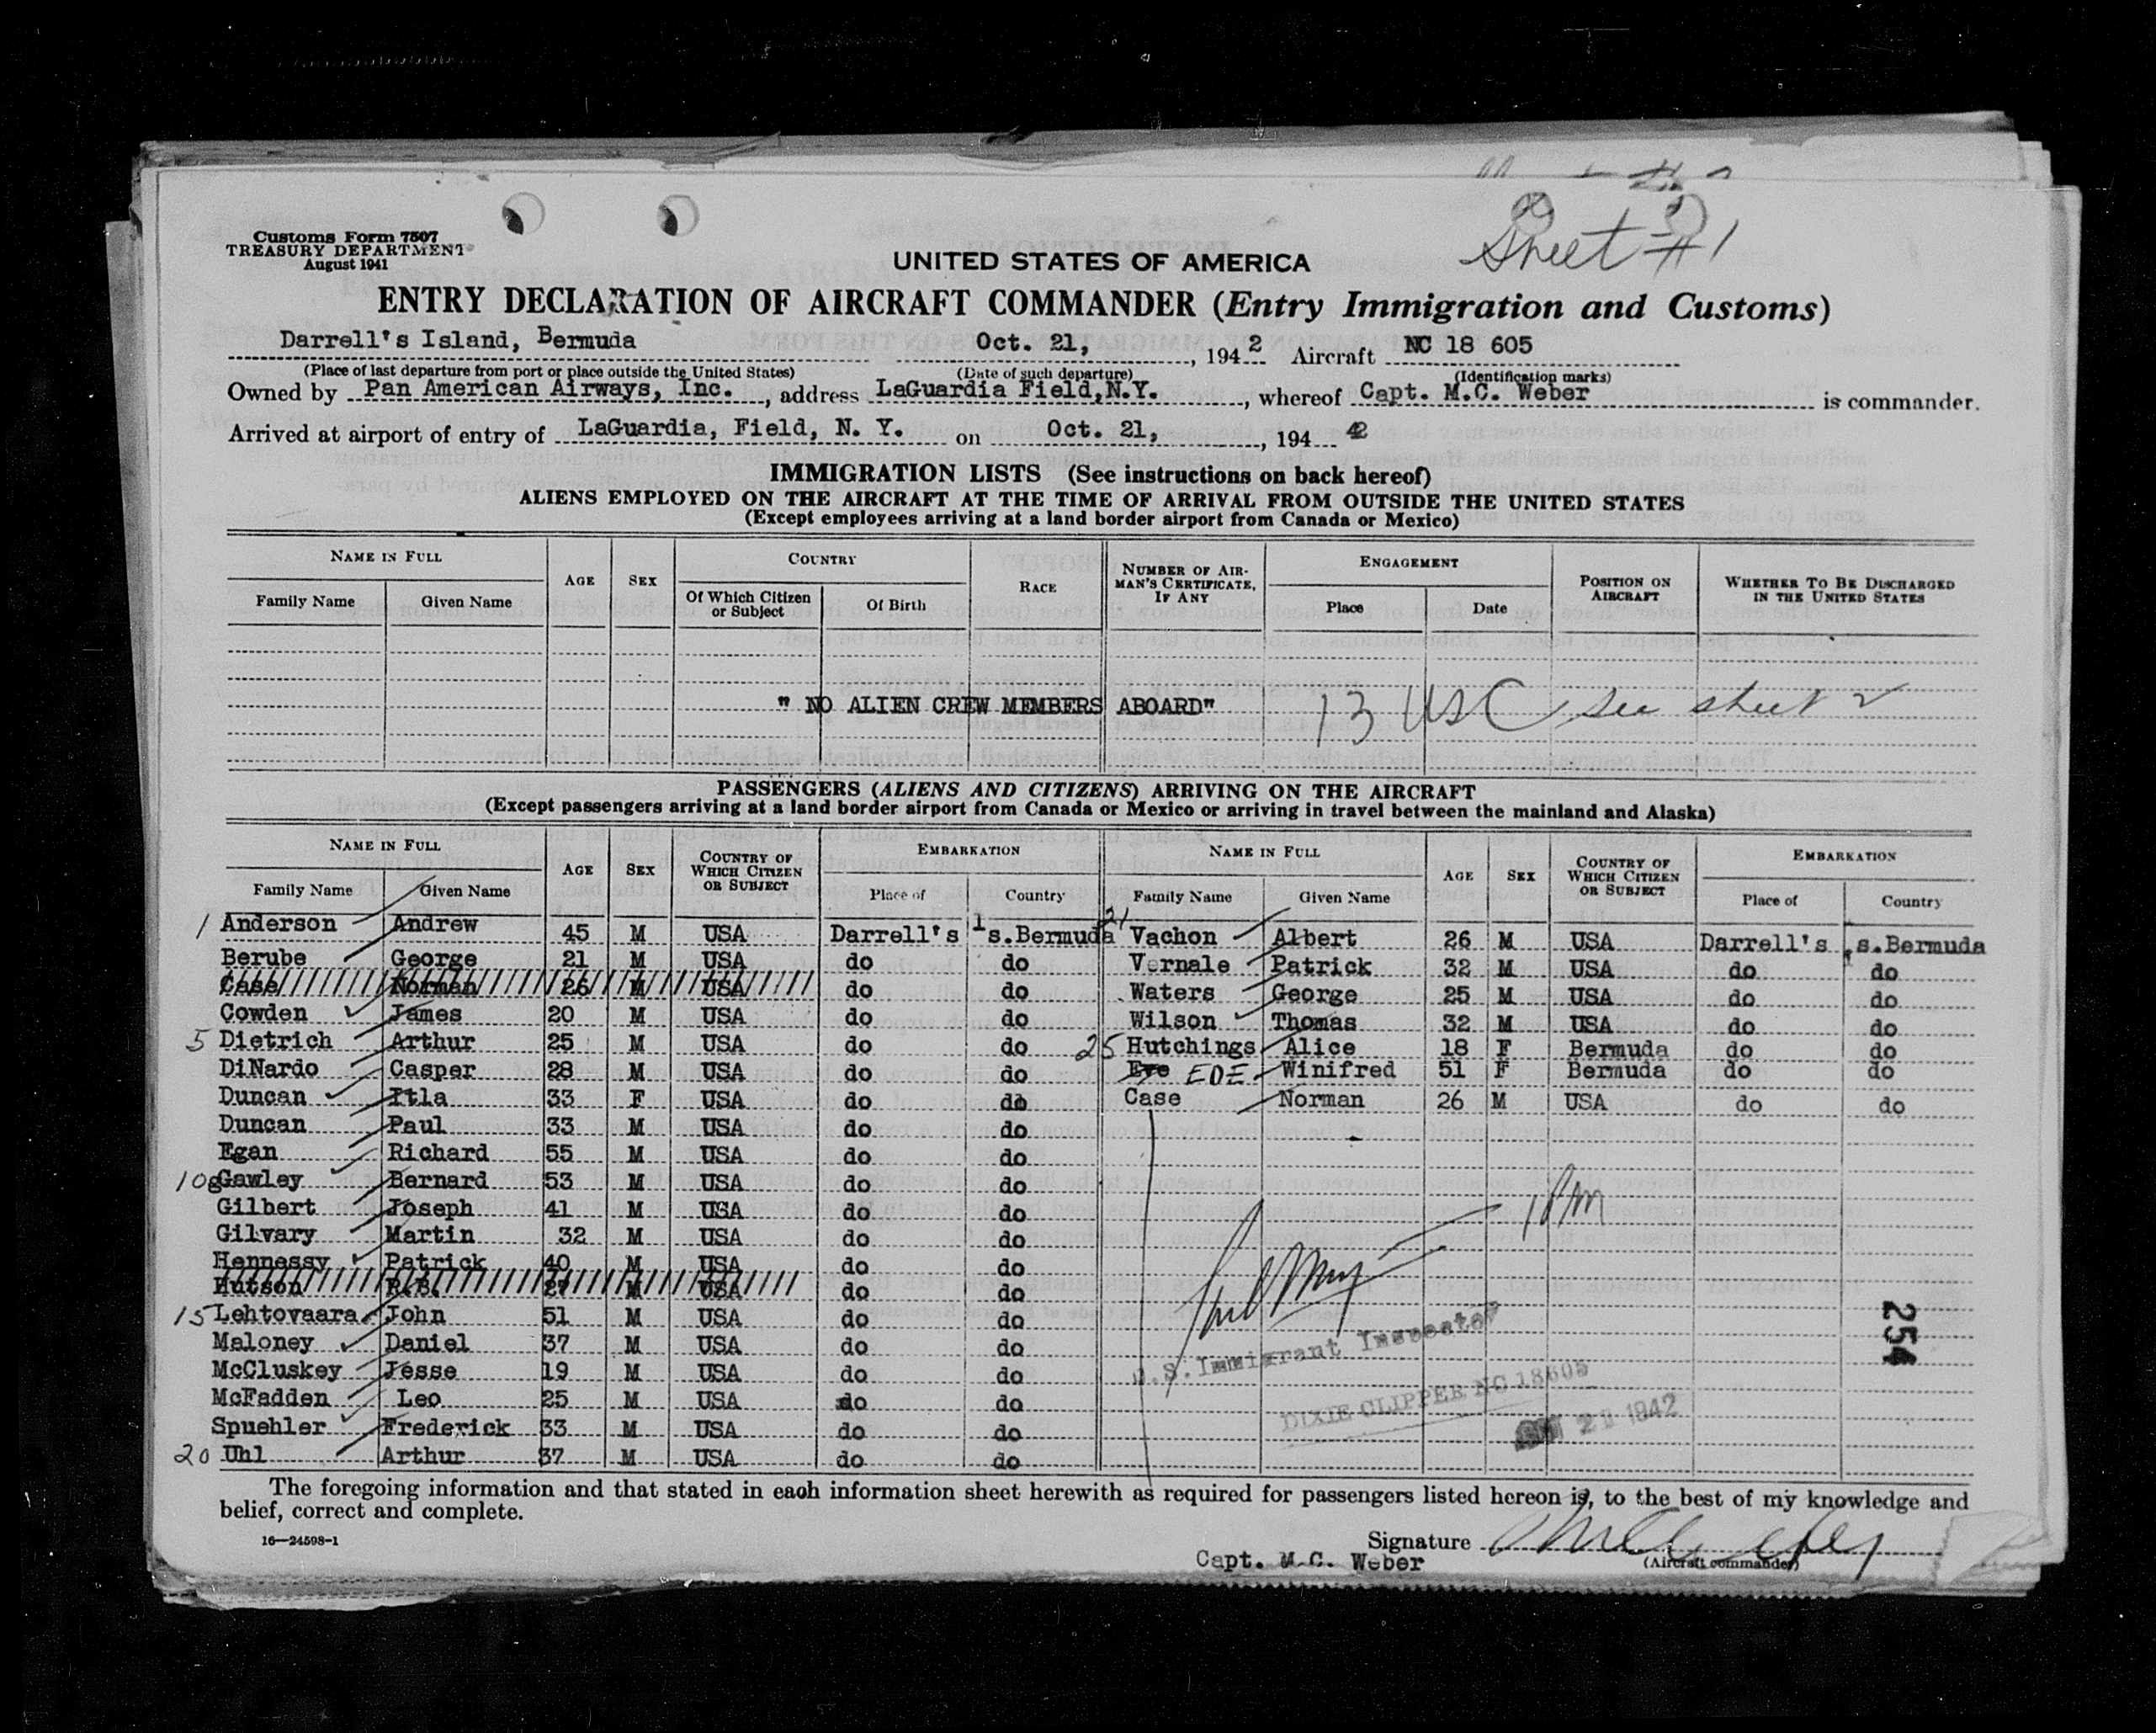 Sheet #1
Customs Form 7507
TREASURY DEPARTMENT
August 1941
UNITED STATES OF AMERICA
ENTRY DECLARATION OF AIRCRAFT COMMANDER (Entry Immigration and Customs)
Darrell's Island, Bermuda Oct. 21, 1942 Aircraft NC 18 605
(Place of last departure from port or place outside the United States) (Date of such departure) (Identification marks)
Owned by Pan American Airways, Inc., address LaGuardia Field, N.Y., whereof Capt. M.C. Weber is commander.
Arrived at airport of entry of LaGuardia, Field, N. Y. on Oct. 21, 1942
IMMIGRATION LISTS (See instructions on back hereof)
ALIENS EMPLOYED ON THE AIRCRAFT AT THE TIME OF ARRIVAL FROM OUTSIDE THE UNITED STATES
(Except employees arriving at a land border airport from Canada or Mexico)
NAME IN FULL AGE SEX COUNTRY RACE NUMBER OF AIRMAN'S CERTIFICATE, IF ANY ENGAGEMENT POSITION ON AIRCRAFT WHETHER TO BE DISCHARGED IN THE UNITED STATES
Family Name Given Name Of Which Citizen or Subject Of Birth Place Date
" NO ALIEN CREW MEMBERS ABOARD" 13 USC see sheet 2
PASSENGERS (ALIENS AND CITIZENS) ARRIVING ON THE AIRCRAFT
(Except passengers arriving at a land border airport from Canada or Mexico or arriving in travel between the mainland and Alaska)
NAME IN FULL AGE SEX COUNTRY OF WHICH CITIZEN OR SUBJECT EMBARKATION NAME IN FULL AGE SEX COUNTRY OF WHICH CITIZEN OR SUBJECT EMBARKATION
Family Name Given Name Place of Country Family Name Given Name Place of Country
1 Anderson Andrew 45 M USA Darrell's Is.Bermuda 21 Vachon Albert 26 M USA Darrell's Is.Bermuda
Berube George 21 M USA do do Vernale Patrick 32 M USA do do
Case Norman 26 M USA do do Waters George 25 M USA do do
Cowden James 20 M USA do do Wilson Thomas 32 M USA do do
5 Dietrich Arthur 25 M USA do do 25 Hutchings Alice 18 F Bermuda do do
DiNardo Casper 28 M USA do do Eve EDE Winifred 51 F Bermuda do do
Duncan Itla 33 F USA do do Case Norman 26 M USA do do
Duncan Paul 33 M USA do do
Egan Richard 55 M USA do do
10 Gawley Bernard 53 M USA do do
Gilbert Joseph 41 M USA do do
Gilvary Martin 32 M USA do do
Hennessy Patrick 40 M USA do do
Hutson R.B. 27 M USA do do
15 Lehtovaara John 51 M USA do do
Maloney Daniel 37 M USA do do
McCluskey Jesse 19 M USA do do
McFadden Leo 25 M USA do do
Spuehler Frederick 33 M USA do do
20 Uhl Arthur 37 M USA do do
1 PM
U.S. Immigrant Inspector
DIXIE CLIPPER NC 18605
21 1942
254
The foregoing information and that stated in each information sheet herewith as required for passengers listed hereon is, to the best of my knowledge and
belief, correct and complete.
16—24598-1
Signature
Capt. M.C. Weber (Aircraft commander)